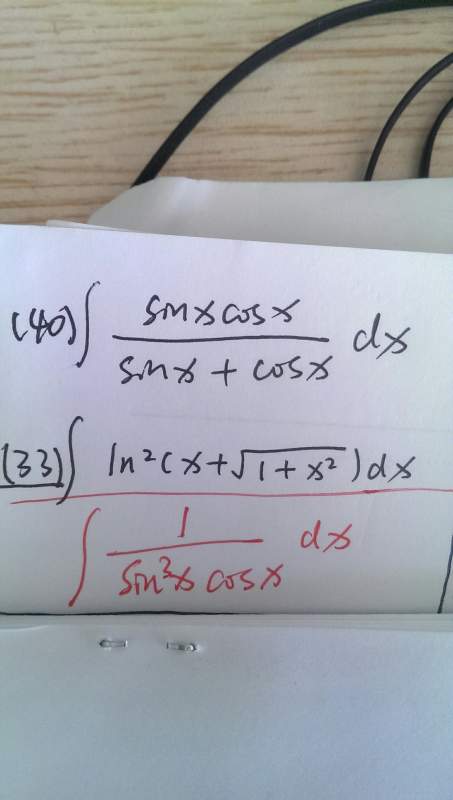 (40) ∫ sinx cosx / (sinx + cosx) dx
(33) ∫ ln²(x+√(1+x²))dx
∫ 1 / (sin³x cosx) dx